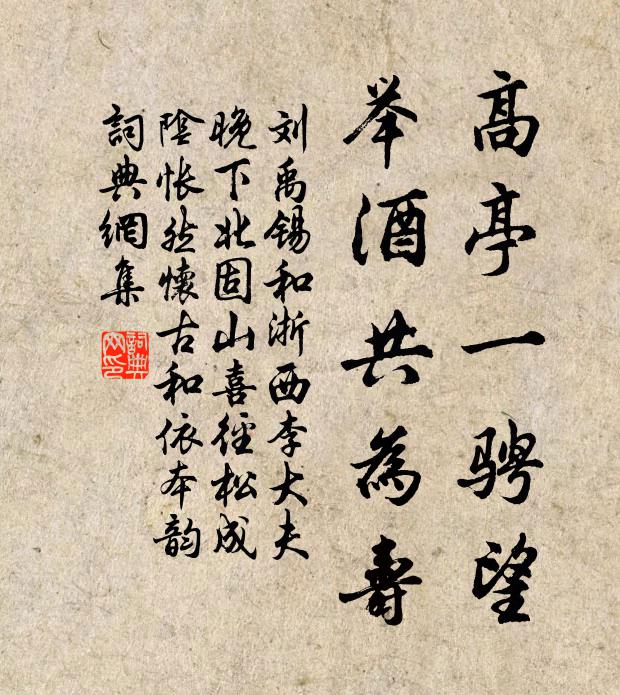 高亭一骋望
举酒共為壽
刘禹锡和浙西李大夫
晚下北固山喜徑松成
陰悵然懷古和依本韵
詞典網集
詞典網印